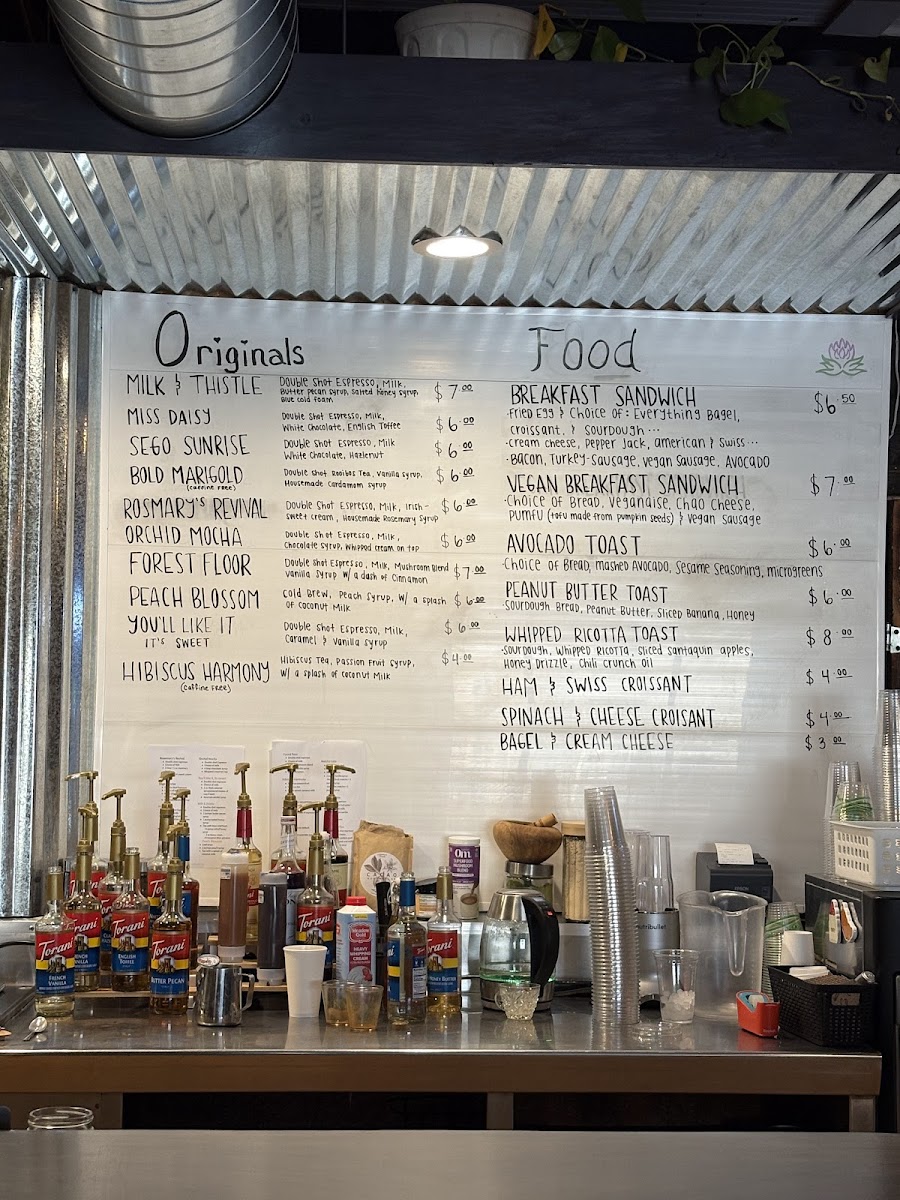 Originals
MILK & THISTLE
Double Shot Espresso, Milk,
Butter pecan syrup, salted honey syrup,
Blue cold foam
$7.00
MISS DAISY
Double Shot Espresso, Milk,
White Chocolate, English Toffee
$6.00
SEGO SUNRISE
Double Shot Espresso, Milk
White Chocolate, Hazlenut
$6.00
BOLD MARIGOLD
(caffine free)
Double shot Rooibos Tea, vanilla syrup,
Housemade Cardamom syrup
$6.00
ROSMARY'S REVIVAL
Double Shot Espresso, Milk, Irish-
sweet cream, Housemade Rosemary syrup
$6.00
ORCHID MOCHA
Double Shot Espresso, Milk,
Chocolate syrup, whipped cream on top
$6.00
FOREST FLOOR
Double Shot Espresso, Milk, Mushroom Blend
Vanilla Syrup w/ a dash of Cinnamon
$7.00
PEACH BLOSSOM
Cold Brew, Peach Syrup, w/ a splash
of coconut Milk
$6.00
YOU'LL LIKE IT
IT'S SWEET
Double Shot Espresso, Milk,
Caramel & Vanilla syrup
$6.00
HIBISCUS HARMONY
(caffine free)
Hibiscus Tea, Passion Fruit syrup,
w/ a splash of coconut Milk
$4.00
Food
BREAKFAST SANDWICH
$6.50
·Fried Egg & Choice of: Everything Bagel,
croissant, & Sourdough...
·Cream cheese, Pepper Jack, american & Swiss...
·Bacon, Turkey-Sausage, vegan Sausage, AVOCADO
VEGAN BREAKFAST SANDWICH
$7.00
·Choice of Bread, Veganaise, Chao Cheese,
Pumfu (tofu made from pumpkin seeds) & vegan sausage
AVOCADO TOAST
$6.00
·Choice of Bread, mashed Avocado, Sesame Seasoning, microgreens
PEANUT BUTTER TOAST
$6.00
·Sourdough Bread, Peanut Butter, Sliced Banana, Honey
WHIPPED RICOTTA TOAST
$8.00
·Sourdough, Whipped Ricotta, sliced santaquin apples,
Honey Drizzle, Chili crunch oil
HAM & SWISS CROISSANT
$4.00
SPINACH & CHEESE CROISANT
$4.00
BAGEL & CREAM CHEESE
$3.00
Torani
FRENCH
VANILLA
Torani
Torani
ENGLISH
TOFFEE
Torani
BUTTER PECAN
Torani
Meadow
Gold
HEAVY
WHIPPING
CREAM
Torani
Om
nutribullet
EPSON